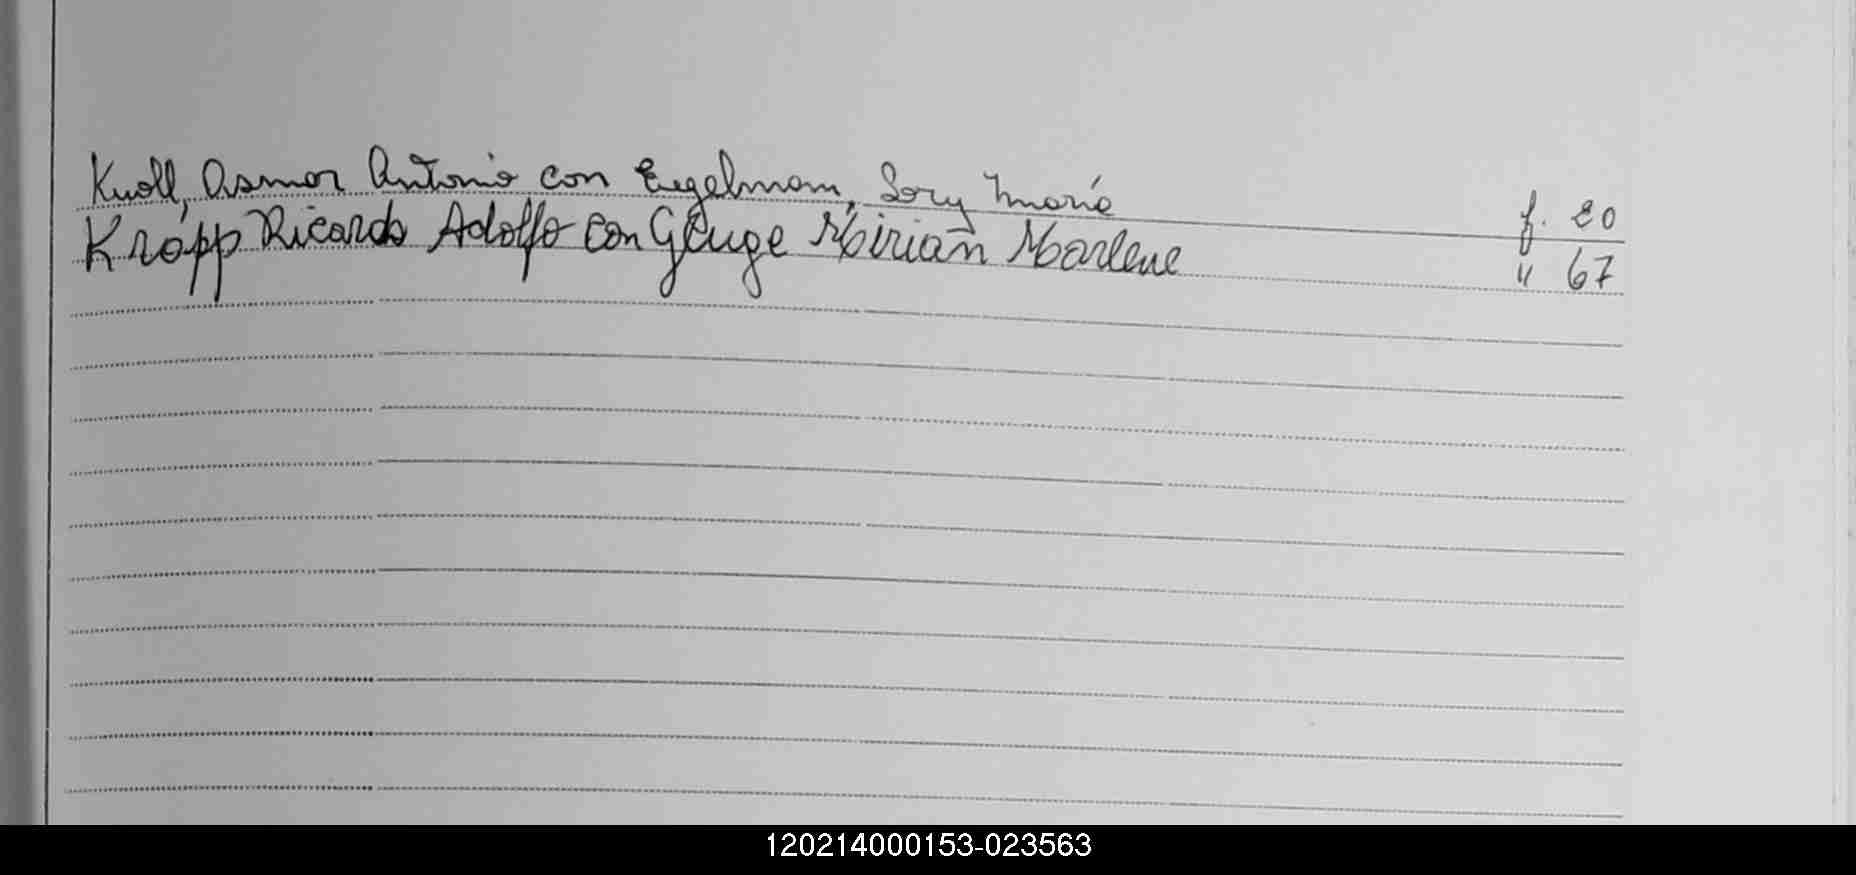 Knoll, Osmar Antonio con Engelmam, Sory María f. 20
Kropp Ricardo Adolfo con Genge Mirian Marlene " 67
120214000153-023563